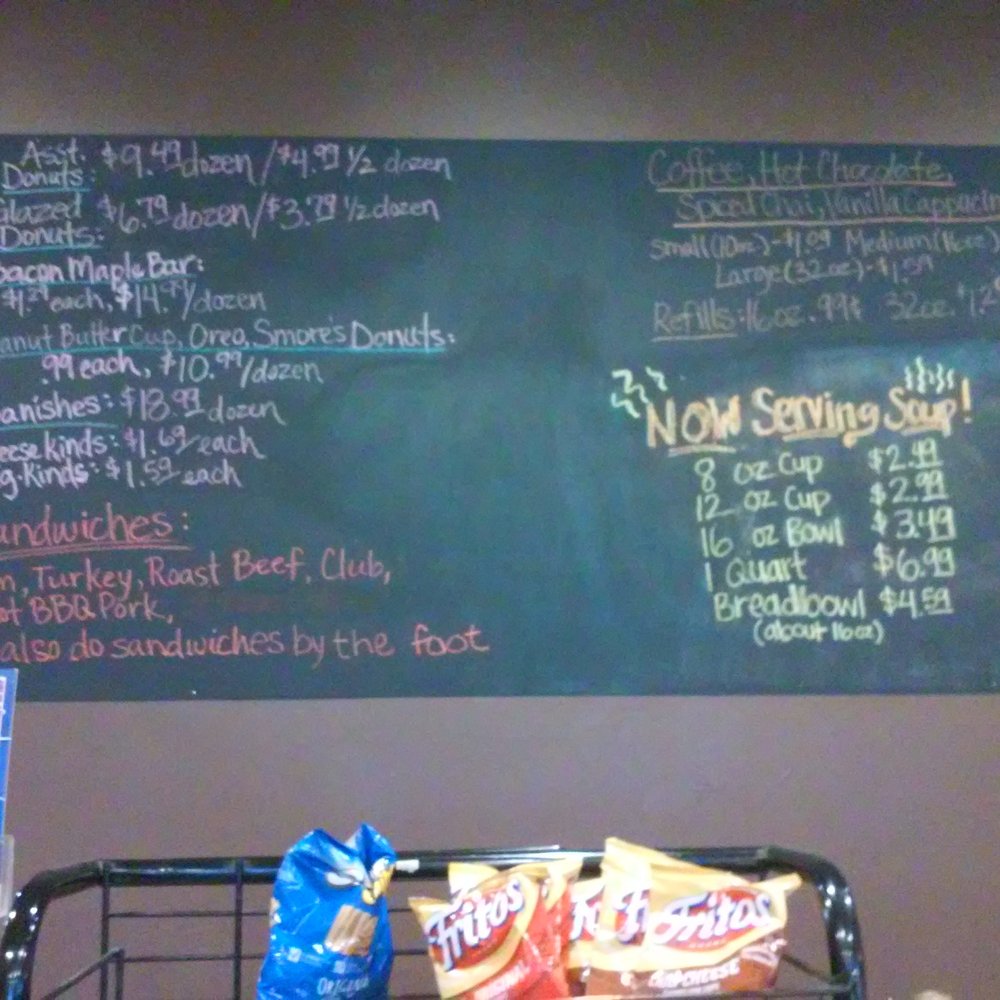 Asst. $9.49 dozen / $4.99 1/2 dozen
Donuts:
Glazed $6.79 dozen / $3.79 1/2 dozen
Donuts:
bacon Maple Bar:
$1.29 each, $14.99/dozen
eanut Butter Cup, Oreo, Smore's Donuts:
.99 each, $10.99/dozen
anishes: $18.99 dozen
eese kinds: $1.69 each
g. Kinds: $1.59 each
andwiches:
m, Turkey, Roast Beef, Club,
ot BBQ Pork,
also do sandwiches by the foot
Coffee, Hot Chocolate,
Spiced Chai, Vanilla Cappacin
Small (10oz.)-$1.09 Medium (16oz)
Large (32oz)-$1.59
Refills: 16oz. .99¢ 32oz. $1.2
NOW Serving Soup!
8 oz Cup $2.49
12 oz Cup $2.99
16 oz Bowl $3.49
1 Quart $6.99
Breadbowl $4.59
(about 16oz)
ORIGINAL
Fritos
ORIGINAL
Fritos
CHILI CHEESE